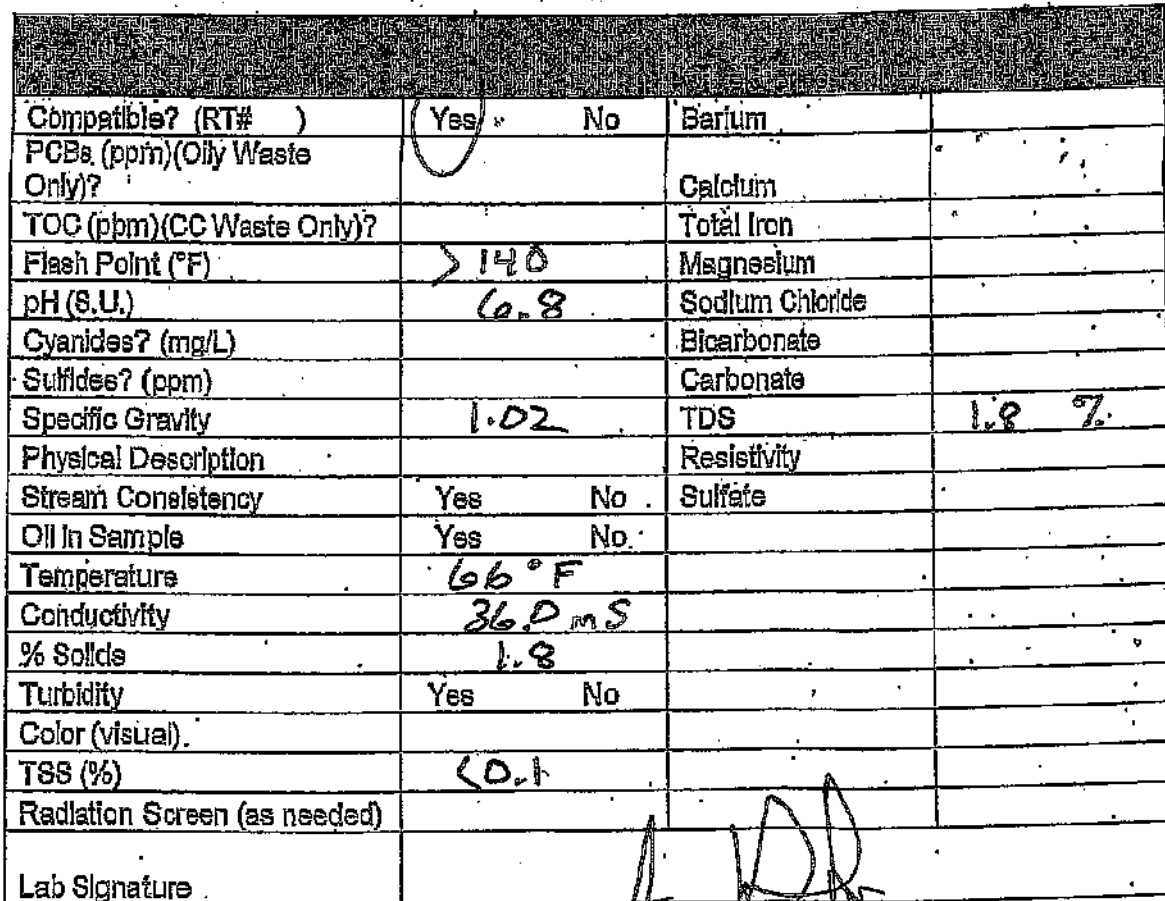 Compatible? (RT# ) Yes No Barium
PCBs (ppm)(Oily Waste
Only)? Calcium
TOC (ppm)(CC Waste Only)? Total Iron
Flash Point (°F) >140 Magnesium
pH (S.U.) 6.8 Sodium Chloride
Cyanides? (mg/L) Bicarbonate
Sulfides? (ppm) Carbonate
Specific Gravity 1.02 TDS 1.8 %
Physical Description Resistivity
Stream Consistency Yes No Sulfate
Oil in Sample Yes No
Temperature 66°F
Conductivity 36.0 mS
% Solids 1.8
Turbidity Yes No
Color (visual)
TSS (%) <0.1
Radiation Screen (as needed)
Lab Signature